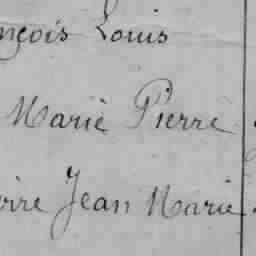 nçois Louis
Marie Pierre
irre Jean Marie